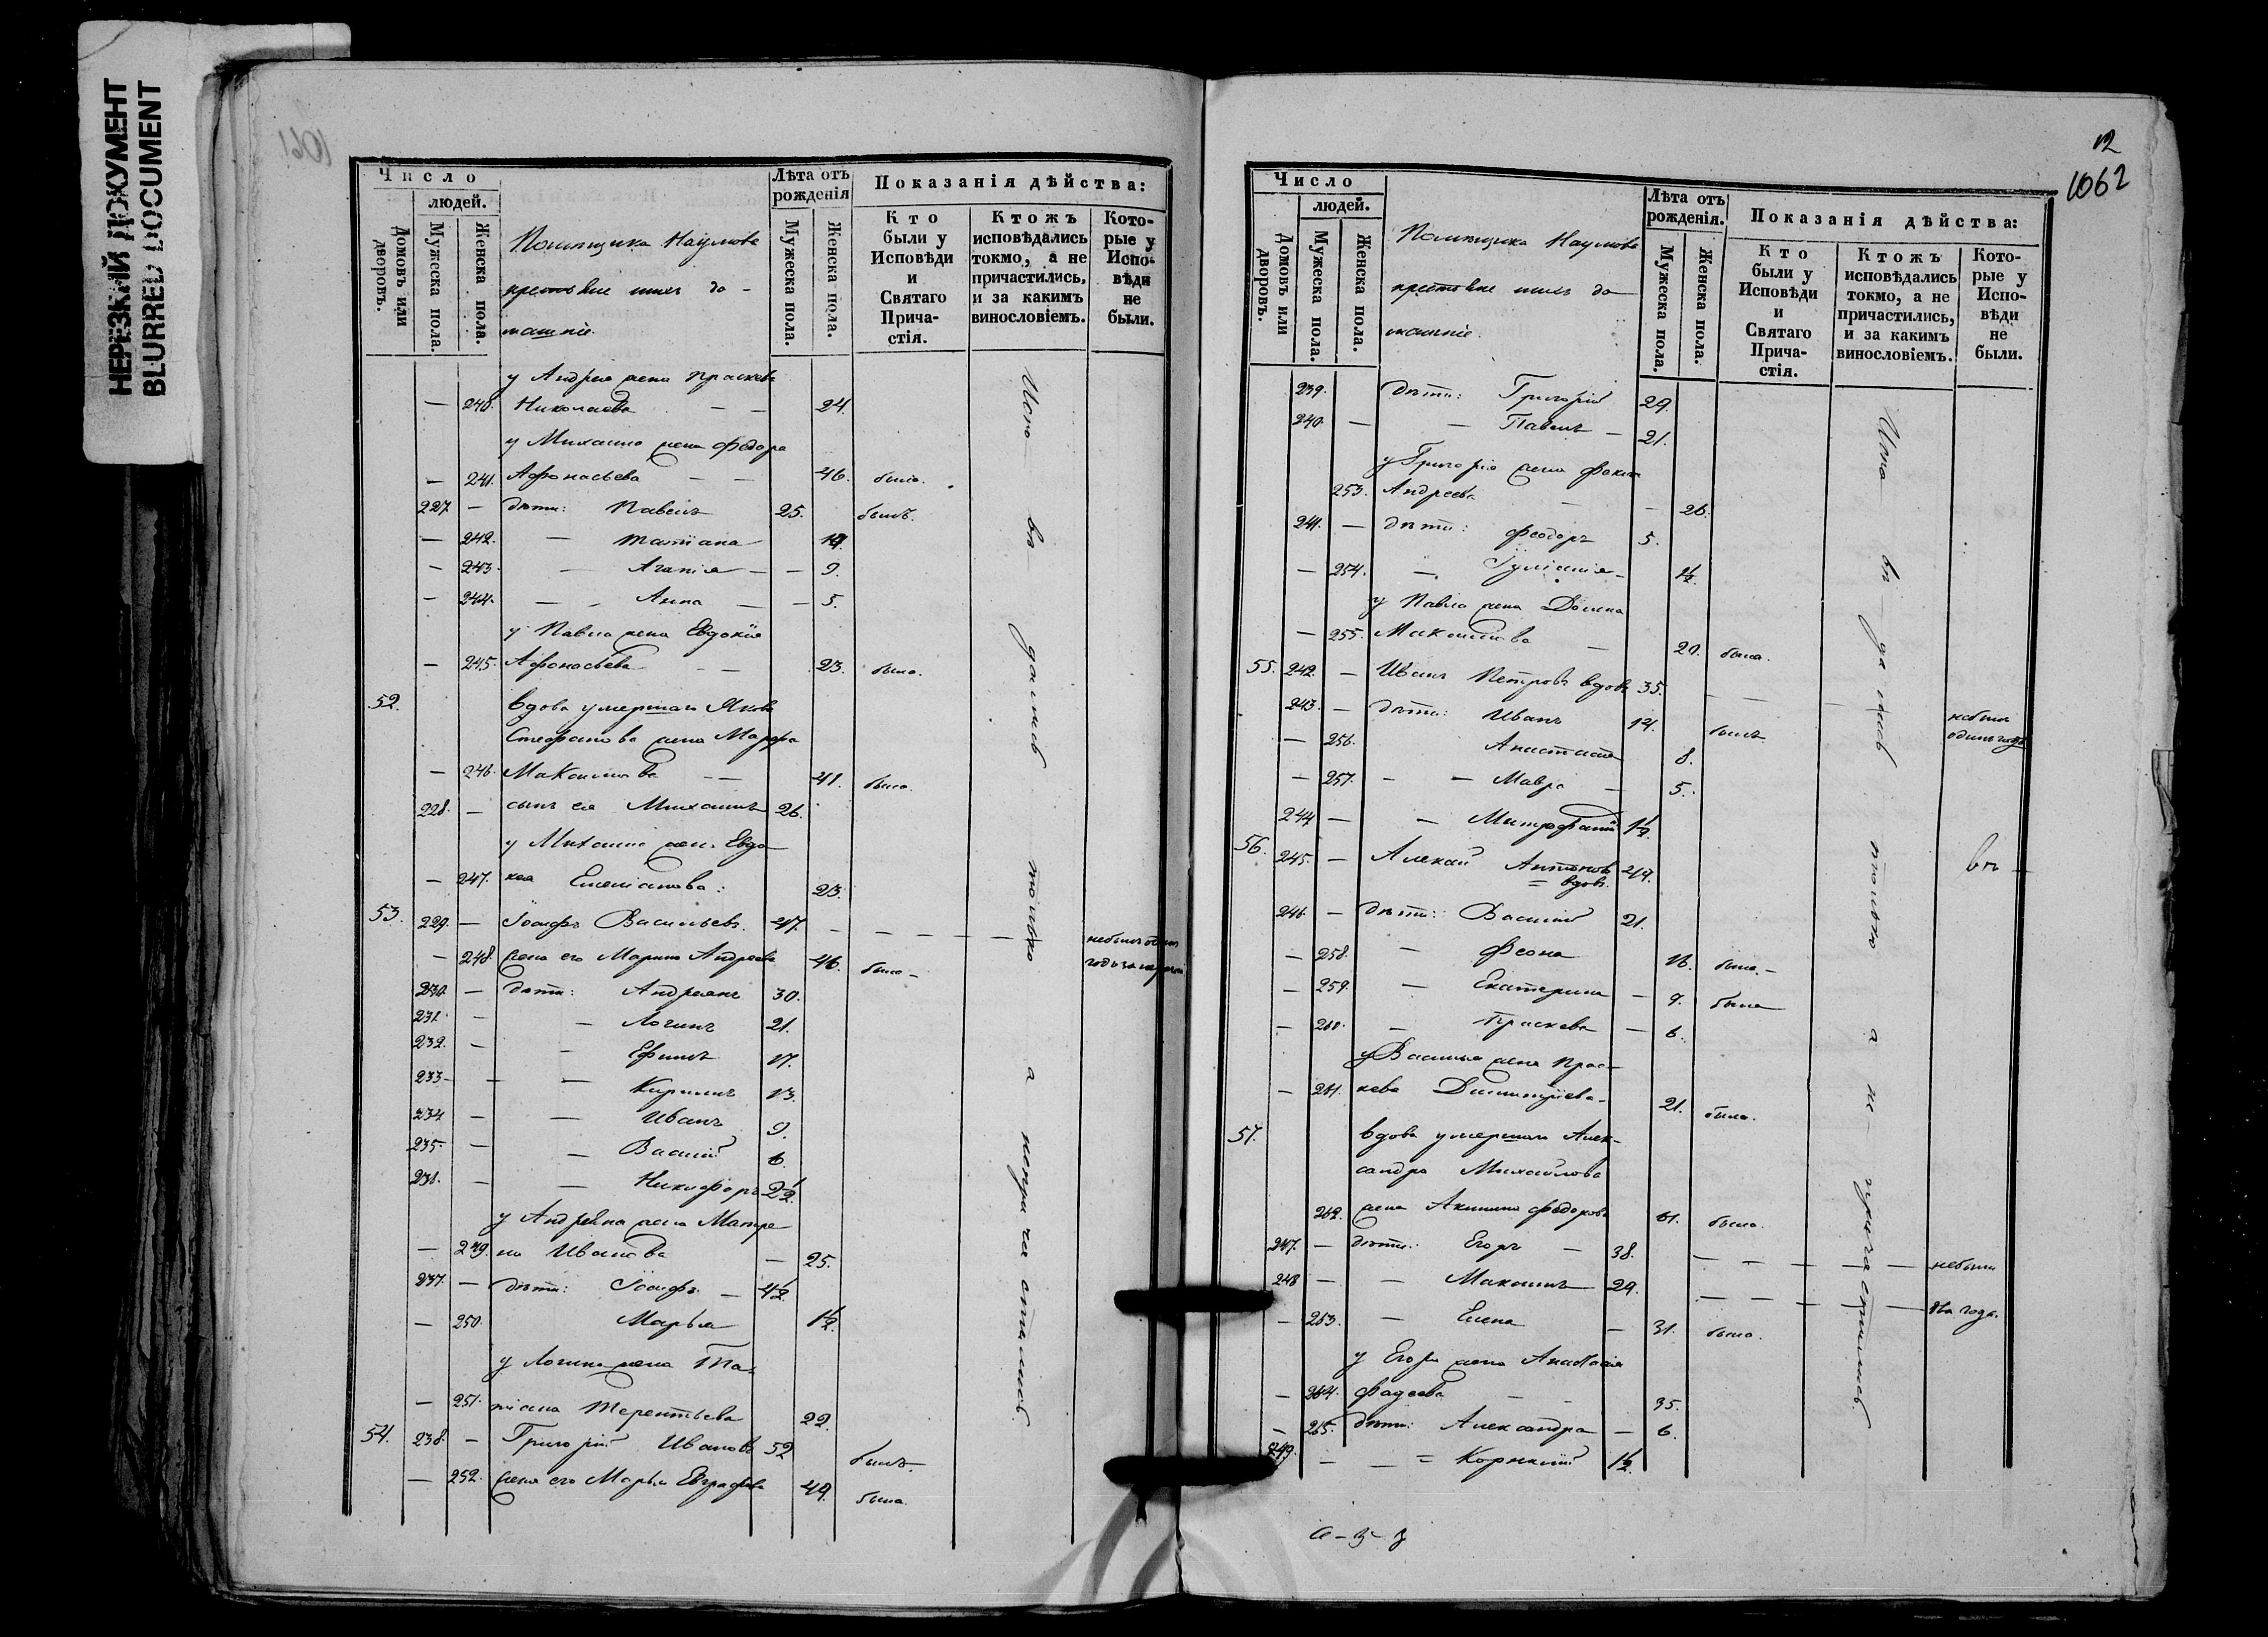 НЕРЕЗКИЙ ДОКУМЕНТ
BLURRED DOCUMENT
1061
Число
людей.
Домовъ или дворовъ.
Мужеска пола.
Женска пола.
Помѣщика Наумова
крестьяне ихъ до-
машніе.
Лѣта отъ рожденія
Мужеска пола.
Женска пола.
Показанія дѣйства:
Кто были у Исповѣди и Святаго Причастія.
Ктожъ исповѣдались токмо, а не причастились, и за какимъ винословіемъ.
Которые у Исповѣди не были.
у Андрея жена Праскева
— 240. Николаева — — 24.
у Михаила жена Федора
— 241. Афонасьева — — 46. была.
227 — дѣти: Павелъ 25. былъ.
— 242. — Татiана 14.
— 243. — Агапія — — 9.
— 244. — — Анна — — 5.
у Павла жена Евдокія
— 245. Афонасьева — 23. была.
52. вдова умершаго Якова
Стефанова жена Марфа
— 246. Максимова — — 41. была.
228. — сынъ ея Михаилъ 26.
у Михаила жена Евдо-
— 247. кея Емеліанова: 23.
53. 229. — Іосифъ Васильевъ. 47. — — — —
— 248. жена его Марина Андреева 46. была —
230. — дѣти: Андреянъ 30.
231. — — Логинъ 21.
232. — — Ефимъ 17.
233 — — — Кирилъ 13.
234 — — Иванъ 9.
235. — — Василій 6.
236. — — Никифоръ 2½.
у Андреяна жена Матре-
— 249. на Иванова — 25.
237. — дѣти: Іосифъ — 4½
— 250. Марья 1½.
у Логина жена Та-
— 251. тіана Терентьева 22.
54. 238. — Григорій Ивановъ 52 былъ.
— 252. жена его Марья Евграфова 49. была.
только а непричастились
12
1062
Число
людей.
Домовъ или дворовъ.
Мужеска пола.
Женска пола.
Помѣщика Наумова
крестьяне ихъ до-
машніе.
Лѣта отъ рожденія.
Мужеска пола.
Женска пола.
Показанія дѣйства:
Кто были у Исповѣди и Святаго Причастія.
Ктожъ исповѣдались токмо, а не причастились, и за какимъ винословіемъ.
Которые у Исповѣди не были.
239. дѣти: Григорій 29.
240. — — Павелъ — 21.
у Григорія жена
253. Андреева — — 26.
241. — дѣти: Феодоръ 5.
— 254. — Іуліанія — 1½.
у Павла жена Домна
— 255. Максимова — 20. была.
55. 242. — Иванъ Петровъ вдовъ 35. — — небылъ
243. — дѣти: Иванъ 14. былъ. одинъ годъ
— 256. Анастасія 8.
— 257. — — Мавра — 5.
244 — — Митрофанъ 1½.
56. 245. — Алексій Антоновъ 49.
= вдовъ.
246. — дѣти: Василій 21.
— 258. — Феона 16. была. —
— 259. — Екатерина — 9. была
— 260. — Праскева — 6.
у Василья жена Прас-
— 261. кева Димитріева — 21. была.
57. вдова умершаго Алек-
сандра Михайлова
262. жена Акилина Федорова 61. была.
247. — дѣти: Егоръ — 38. — — — — небыли
248 — — Максимъ 29. — — — — два года.
— 263. — Елена — 31. была.
у Егора жена Анастасія
— 264. Фадеева — 35.
— 265. дѣти: Александра — 6.
249. — — = Корнилій 1½.
только а не причастились